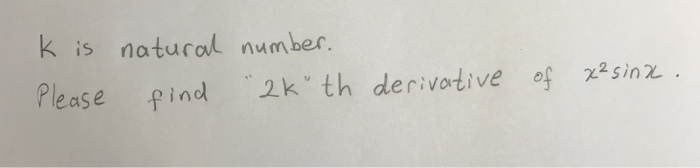 k is natural number.
Please find "2k" th derivative of x² sin x.